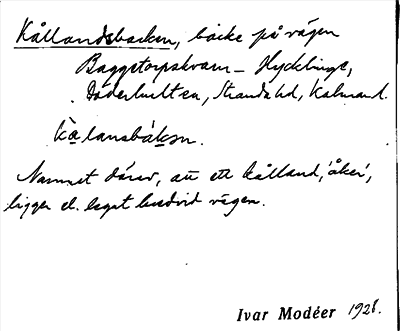 Kållandsbacken, backe på vägen
Baggetorpskvarn – Hycklinge,
Döderhult sn, Stranda hd, Kalmar l.
kålansbákøn.
Namnet därav, att ett kålland, 'åker',
ligger el. legat bredvid vägen.
Ivar Modéer 1928.